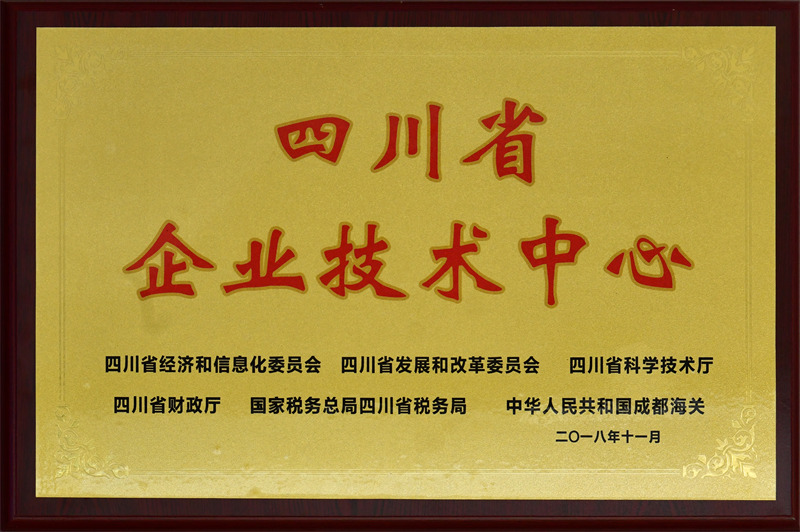 四川省
企业技术中心
四川省经济和信息化委员会 四川省发展和改革委员会 四川省科学技术厅
四川省财政厅 国家税务总局四川省税务局 中华人民共和国成都海关
二〇一八年十一月